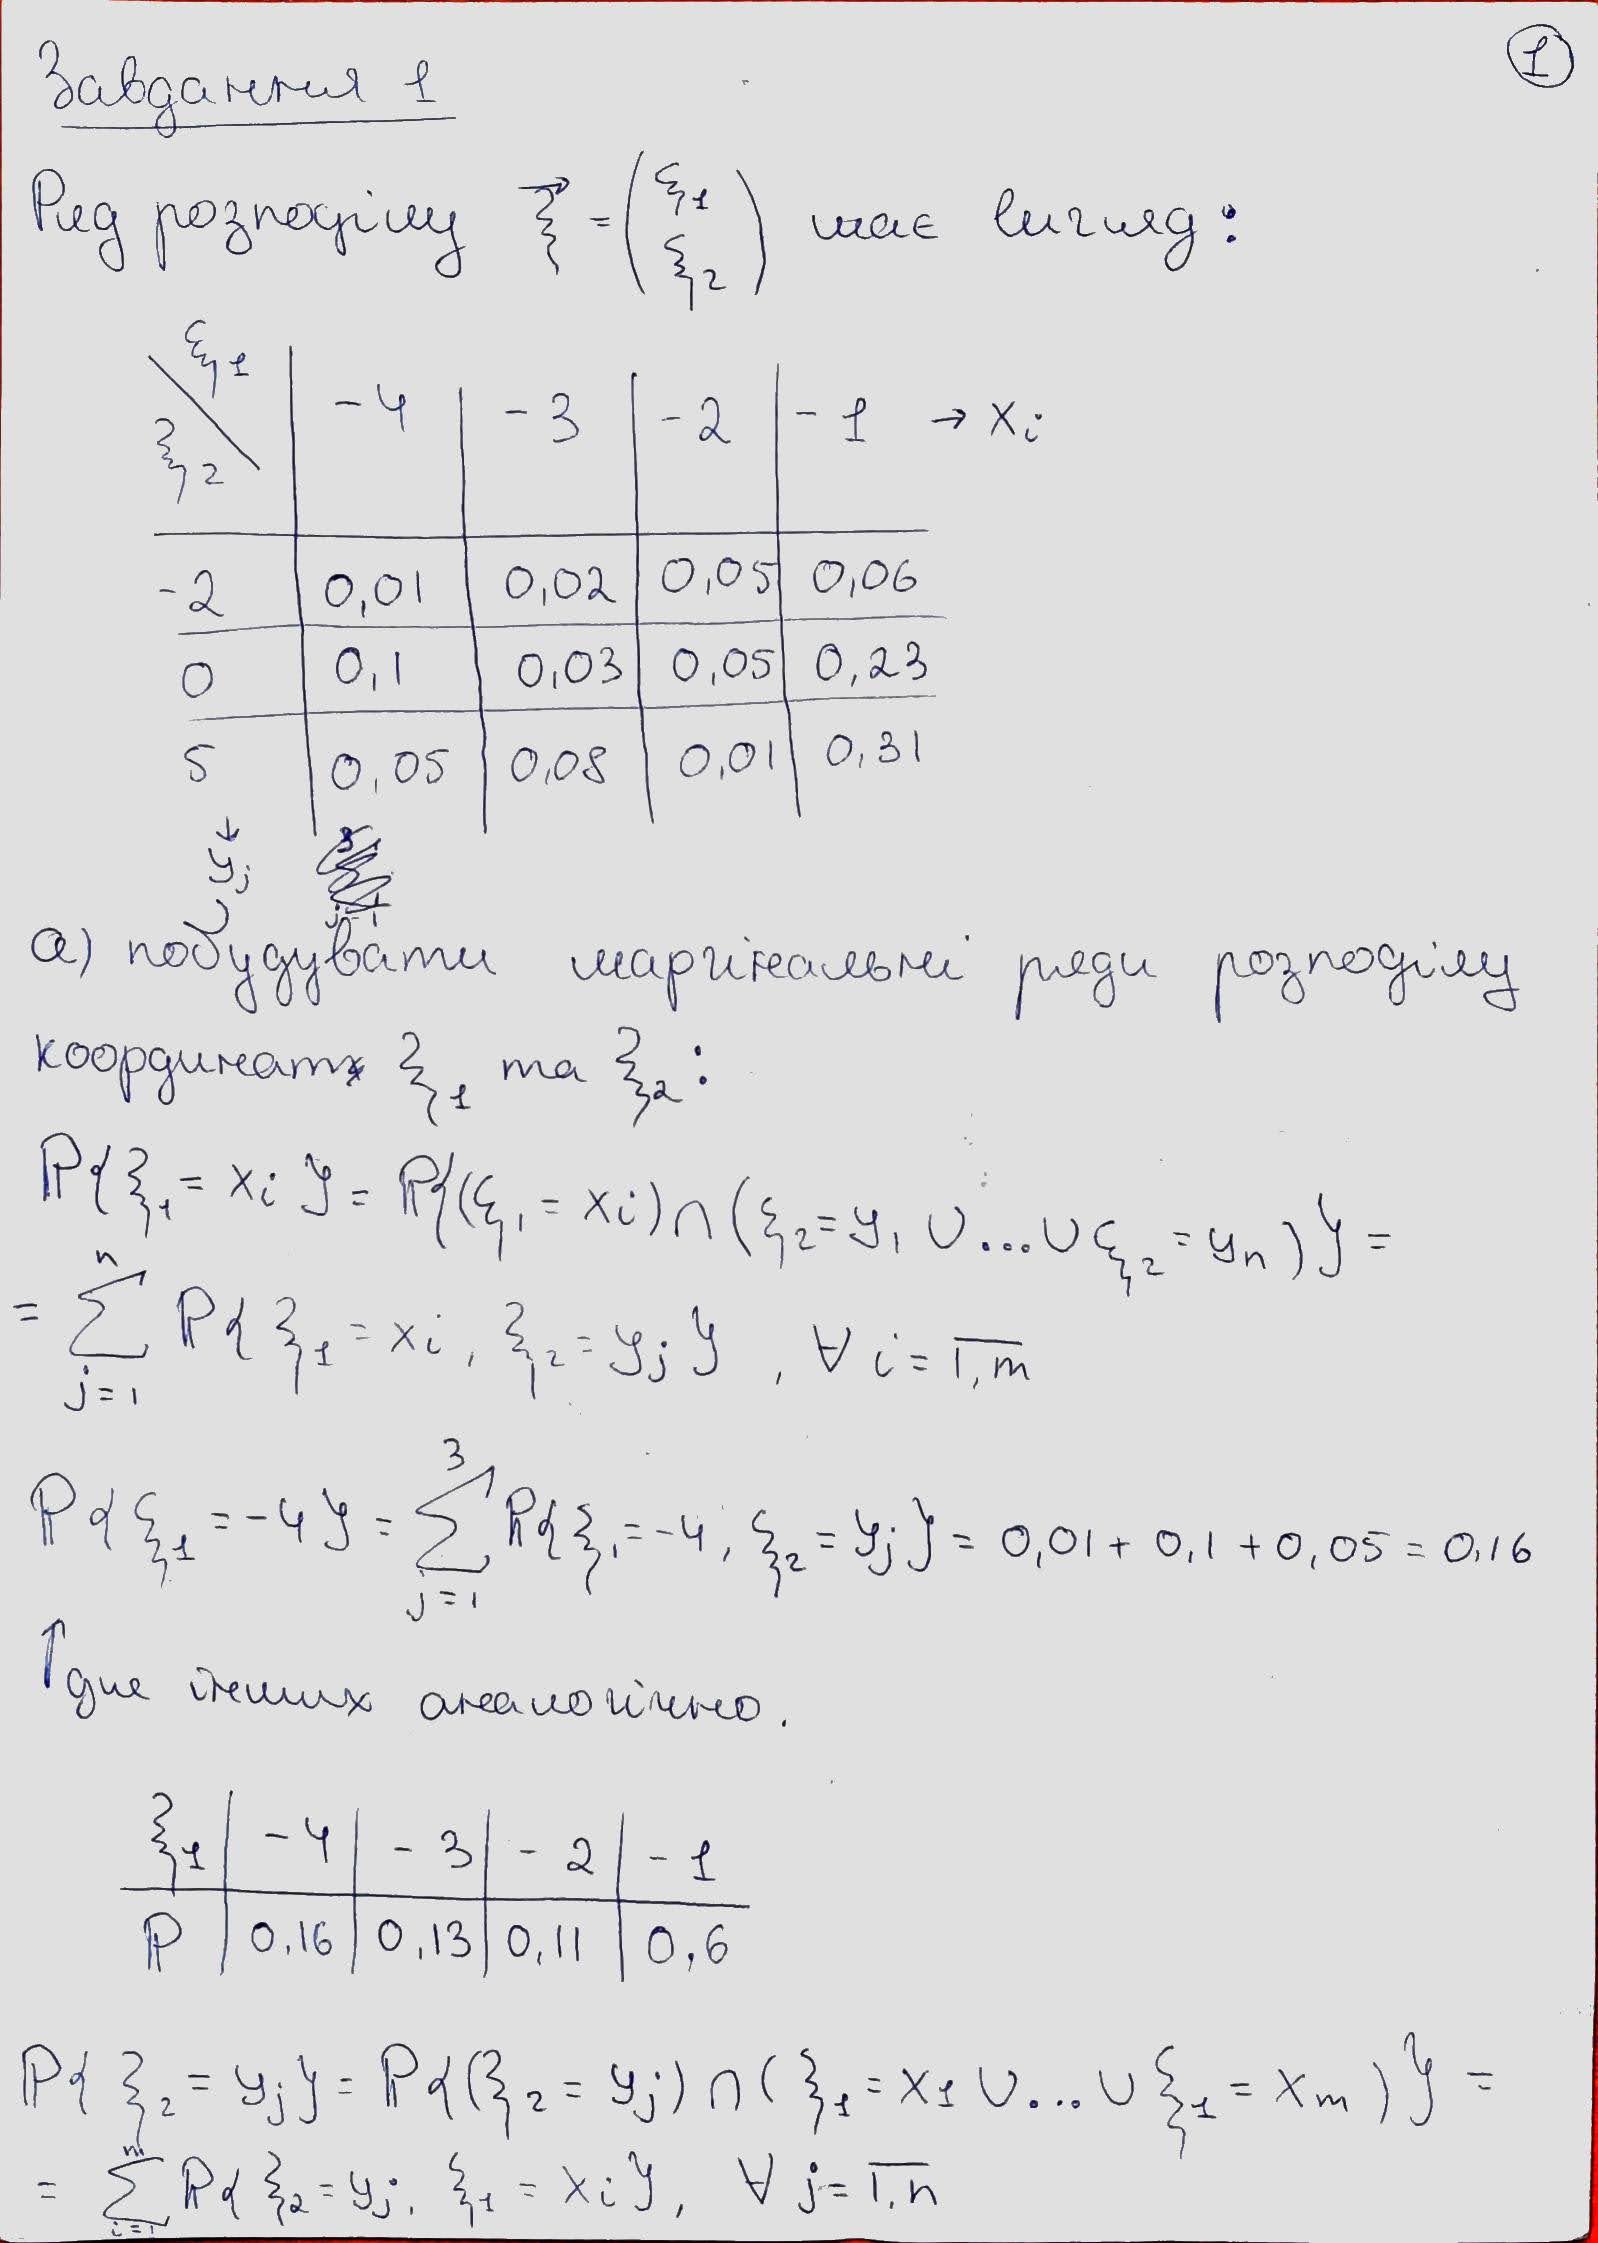 1
Завдання 1
Ряд розподілу ξ⃗ = (ξ1 ξ2) має вигляд:
ξ1 -4 -3 -2 -1 → xi
ξ2
-2 0,01 0,02 0,05 0,06
0 0,1 0,03 0,05 0,23
5 0,05 0,08 0,01 0,31
↓
yj
а) побудувати маргінальні ряди розподілу
координат ξ1 та ξ2:
P{ξ1 = xi} = P{(ξ1 = xi) ∩ (ξ2 = y1 ∪ ... ∪ ξ2 = yn)} =
= ∑_{j=1}^{n} P{ξ1 = xi, ξ2 = yj}, ∀ i = \overline{1,m}
P{ξ1 = -4} = ∑_{j=1}^{3} P{ξ1 = -4, ξ2 = yj} = 0,01 + 0,1 + 0,05 = 0,16
↑ для інших аналогічно.
ξ1 -4 -3 -2 -1
P 0,16 0,13 0,11 0,6
P{ξ2 = yj} = P{(ξ2 = yj) ∩ (ξ1 = x1 ∪ ... ∪ ξ1 = xm)} =
= ∑_{i=1}^{m} P{ξ2 = yj, ξ1 = xi}, ∀ j = \overline{1,n}